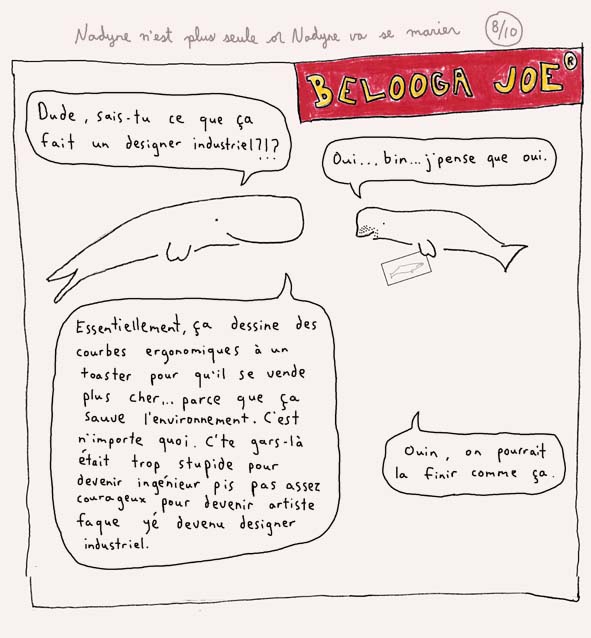 Nadyne n'est plus seule or Nadyne va se marier 8/10
BELOOGA JOE ®
Dude, sais-tu ce que ça
fait un designer industriel?!?
Oui... bin... j'pense que oui.
Essentiellement, ça dessine des
courbes ergonomiques à un
toaster pour qu'il se vende
plus cher... parce que ça
sauve l'environnement. C'est
n'importe quoi. C'te gars-là
était trop stupide pour
devenir ingénieur pis pas assez
courageux pour devenir artiste
faque yé devenu designer
industriel.
Ouin, on pourrait
la finir comme ça.